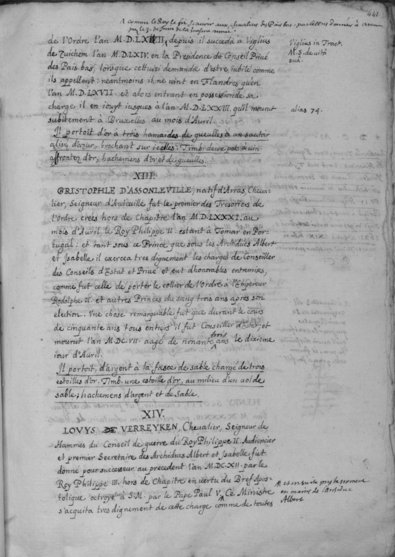 441
de l'Ordre l'an M.D.LXIII, depuis il succeda a Viglius
de Zuichem l'an M.D.LXIV. en la Presidence du Conseil Privé
des Païs bas, lorsque cettuicy demanda d'estre jubilé comme
ils appellent: neantmoins il ne vint en Flandres qu'en
l'an M.D.LXVII et alors entrant en possession de sa
charge il en iouyt iusques à l'an M.D.LXXIII, qu'il mourut
subitement à Bruxelles au mois d'Auril.
Il portoit d'or à trois hamaides de gueulles à un sautor
d'azur brochant sur icelles: Timbr
d'or, hachemens d'or et de gueulles.
Viglius in Tract.
M.S. de
alias 74.
XIII.
CRISTOPHLE D'ASSONLEVILLE, natif d'Arras, Cheua-
lier, Seigneur d'Auteuille fut le premier des Tresoriers de
l'Ordre crees hors de Chapitre l'an M.D.LXXXI. au
mois d'Auril, le Roy Philippe II. estant à Tomar en Por-
tugal: et tant sous ce Prince que sous les Archiducs Albert
et Isabelle il exercea tres dignement les charges de Conseiller
des Conseils d'Estat et Privé et eut d'honorables entremises,
comme fut celle de porter le collier de l'Ordre à l'Empereur
Rodolphe II. et autres Princes du sang trois ans apres son
election. Une chose remarquable fut que durant le cours
de cinquante ans tous entiers il fut Conseiller d'Estat, et
mourut l'an M.DC.VII aagé de nonante trois ans le dixiéme
iour d'Auril.
Il portoit, d'argent à la fasce de sable chargé de trois
estoilles d'or. Timb. une estoille d'or, au milieu d'un vol de
sable; hachemens d'argent et de sable.
XIV.
LOUYS DE VERREYKEN, Chevalier, Seigneur de
Hamme, du Conseil de guerre du Roy Philippe II. Audiencier
et premier Secretaire des Archiducs Albert et Isabelle, fut
donné pour successeur au precedent l'an M.DC.XII. par le
Roy Philippe III. hors de Chapitre en vertu du Bref Apos-
tolique octroyé à S.M. par le Pape Paul V. Ce Ministre
s'acquita tres dignement de cette charge comme de toutes
Albert